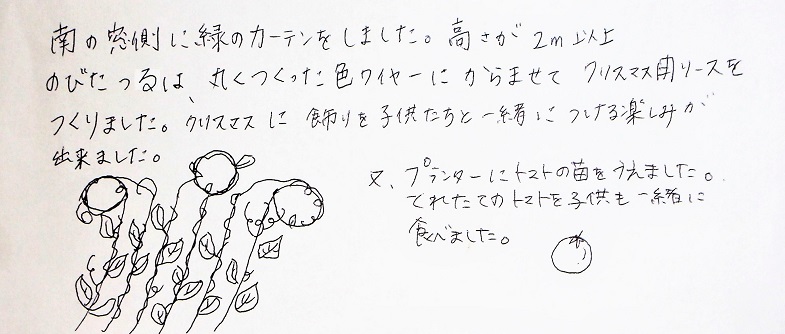 南の窓側に緑のカーテンをしました。高さが 2m以上
のびたつるは、丸くつくった色ワイヤーにからませて クリスマス用リースを
つくりました。クリスマスに 飾りを子供たちと一緒に つける楽しみが
出来ました。
又、プランターにトマトの苗をうえました。
とれたてのトマトを子供も一緒に
食べました。